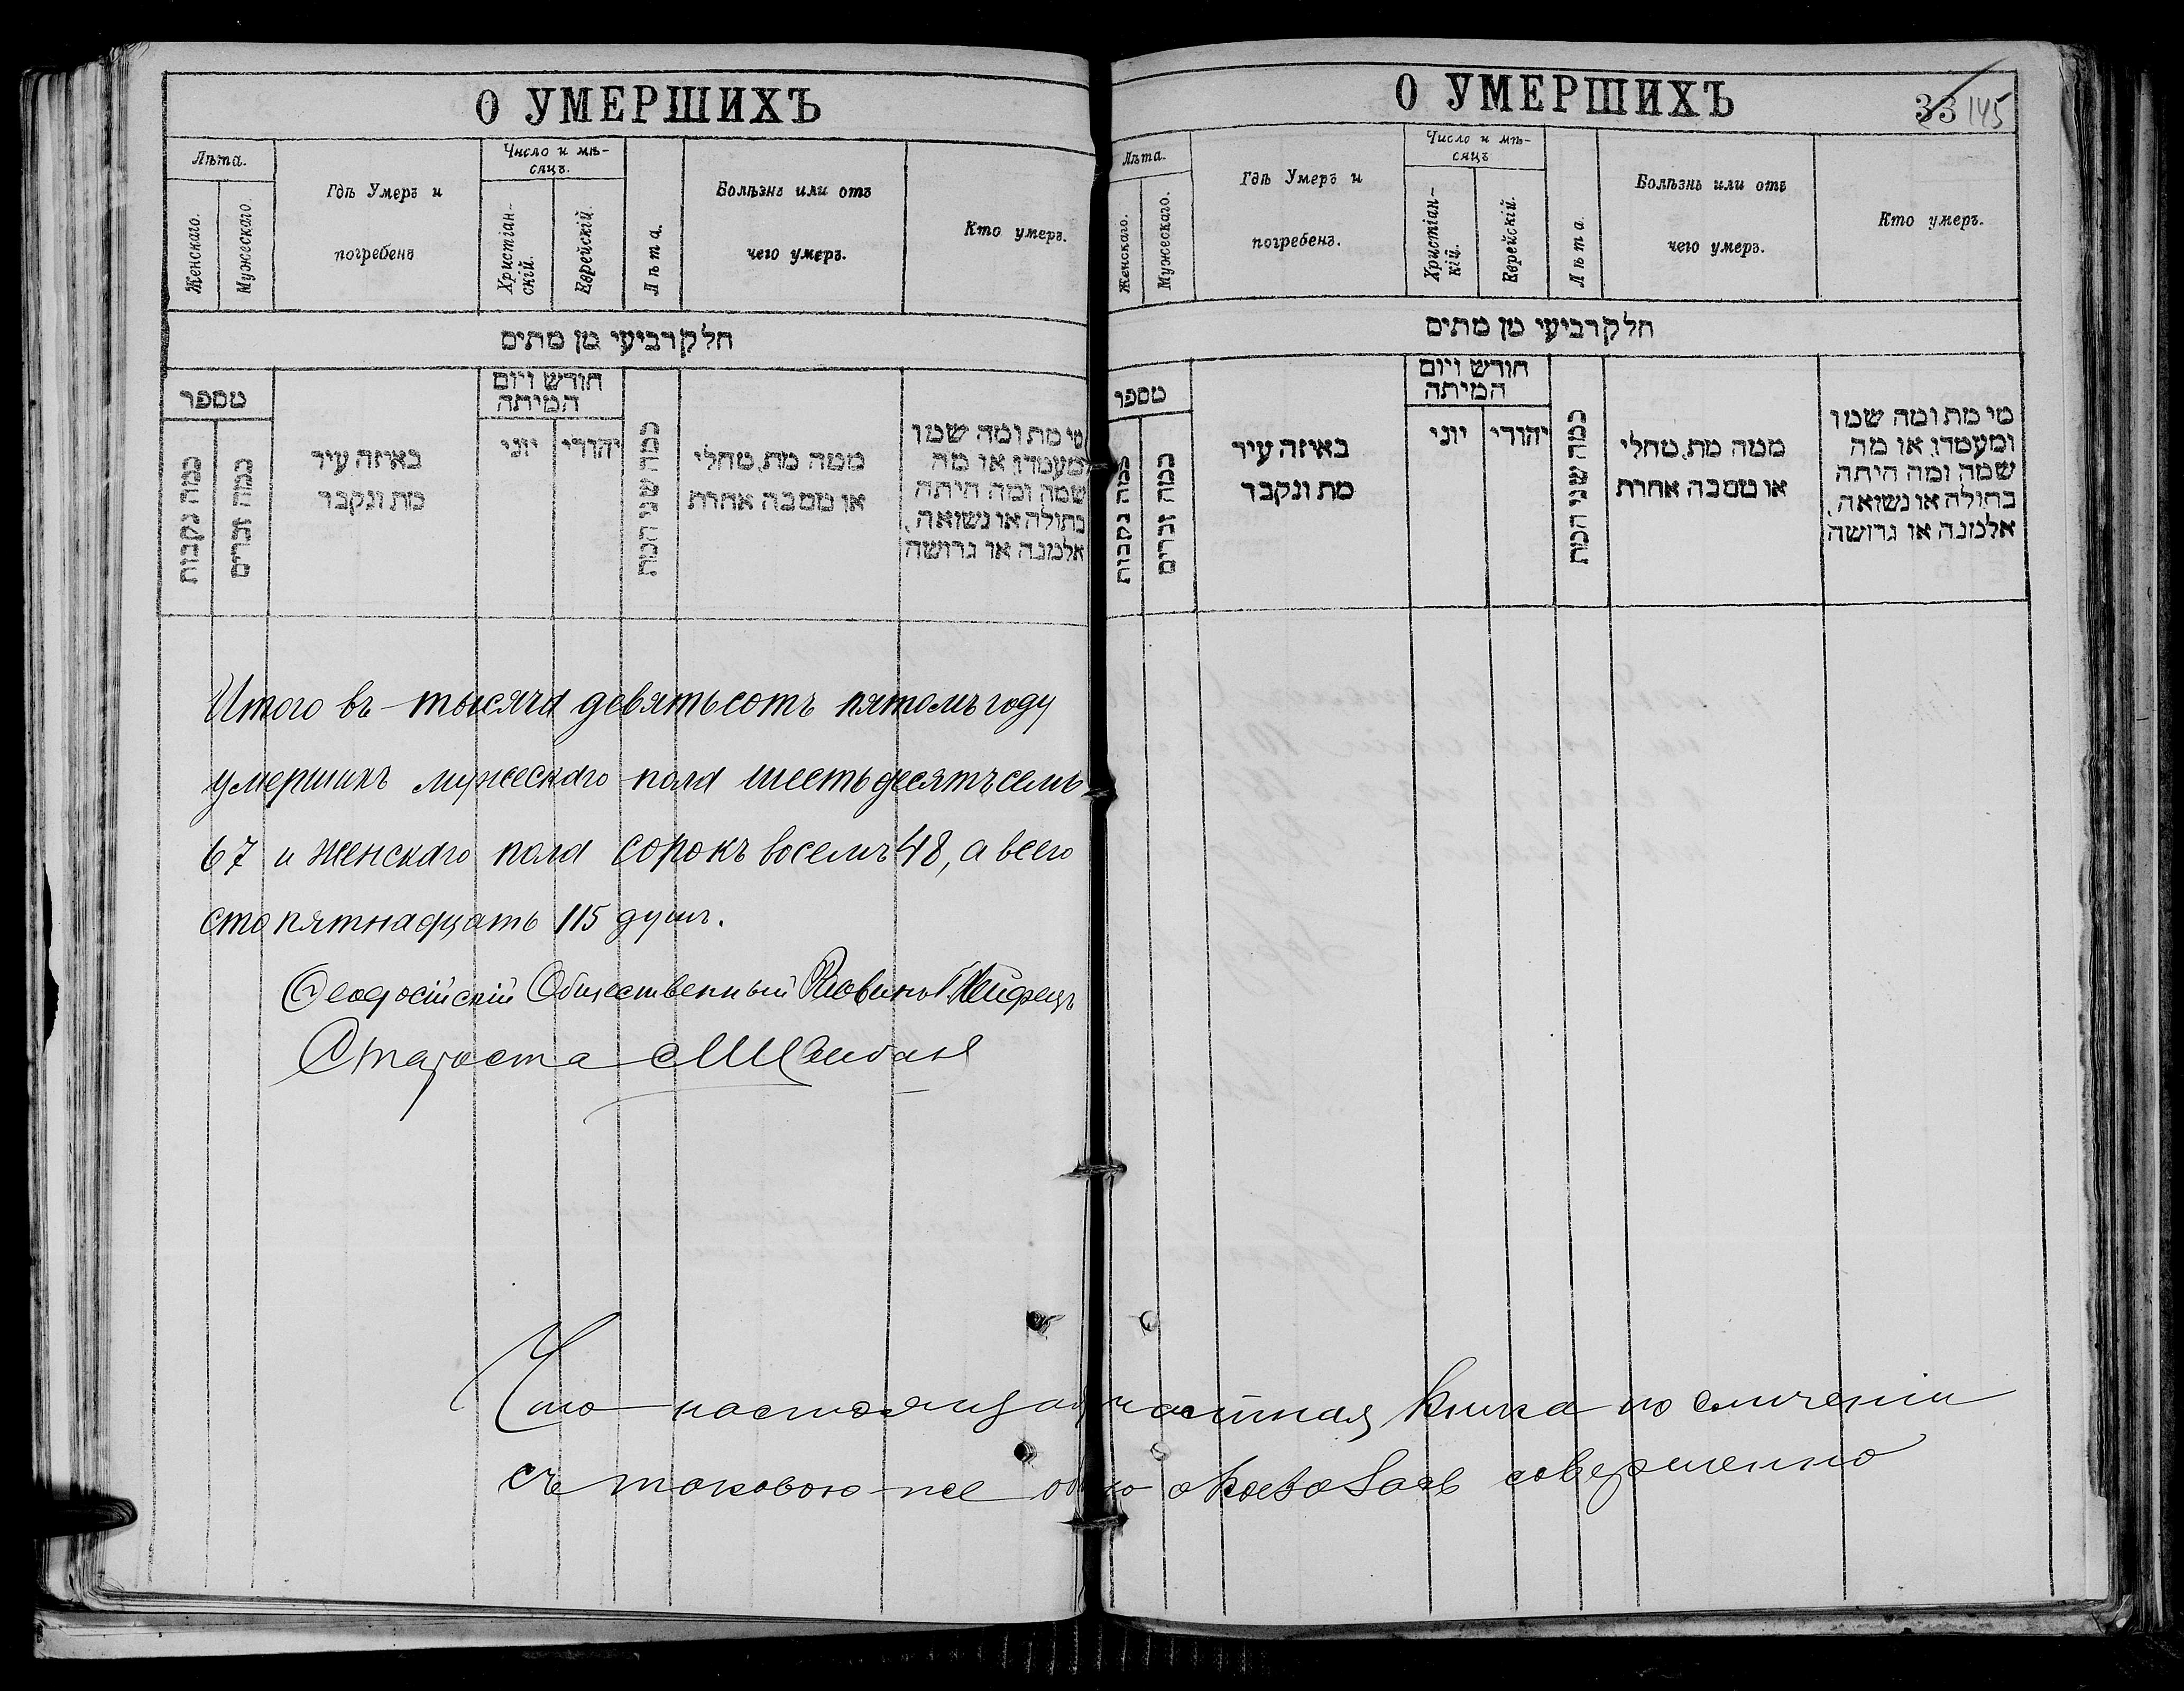 О УМЕРШИХЪ
Лѣта.
Женскаго.
Мужескаго.
Гдѣ Умеръ и
погребенъ
Число и мѣ-
сяцъ.
Христіан-
скій.
Еврейскій.
Лѣта.
Болѣзнь или отъ
чего умеръ.
Кто умеръ.
חלק רביעי מן מתים
מספר
כמה נקבות
כמה זכרים
באיזה עיר
מת ונקבר
חודש ויום
המיתה
יוני
יהודי
כמה שני המת
ממה מת, מחלי
או מסבה אחרת
מי מת ומה שמו
ומעמדו או מה
שמה ומה היתה
בתולה או נשואה,
אלמנה או גרושה
Итого въ тысяча девятьсотъ пятомъ году
умершихъ мужескаго пола шестьдесятъ семь
67 и женскаго пола сорокъ восемь 48, а всего
сто пятнадцать 115 душъ.
Ѳеодосійскій Общественный Раввинъ Г. Хейфецъ
Староста
О УМЕРШИХЪ
33 145
Лѣта.
Женскаго.
Мужескаго.
Гдѣ Умеръ и
погребенъ.
Число и мѣ-
сяцъ
Христіан-
кій.
Еврейскій.
Лѣта.
Болѣзнь или отъ
чего умеръ.
Кто умеръ.
חלק רביעי מן מתים
מספר
כמה נקבות
כמה זכרים
באיזה עיר
מת ונקבר
חודש ויום
המיתה
יוני
יהודי
כמה שני המת
ממה מת, מחלי
או מסבה אחרת
מי מת ומה שמו
ומעמדו, או מה
שמה ומה היתה
בתולה או נשואה,
אלמנה או גרושה
Что настоящая частная книга по сличеніи
съ таковою-же оказалась совершенно